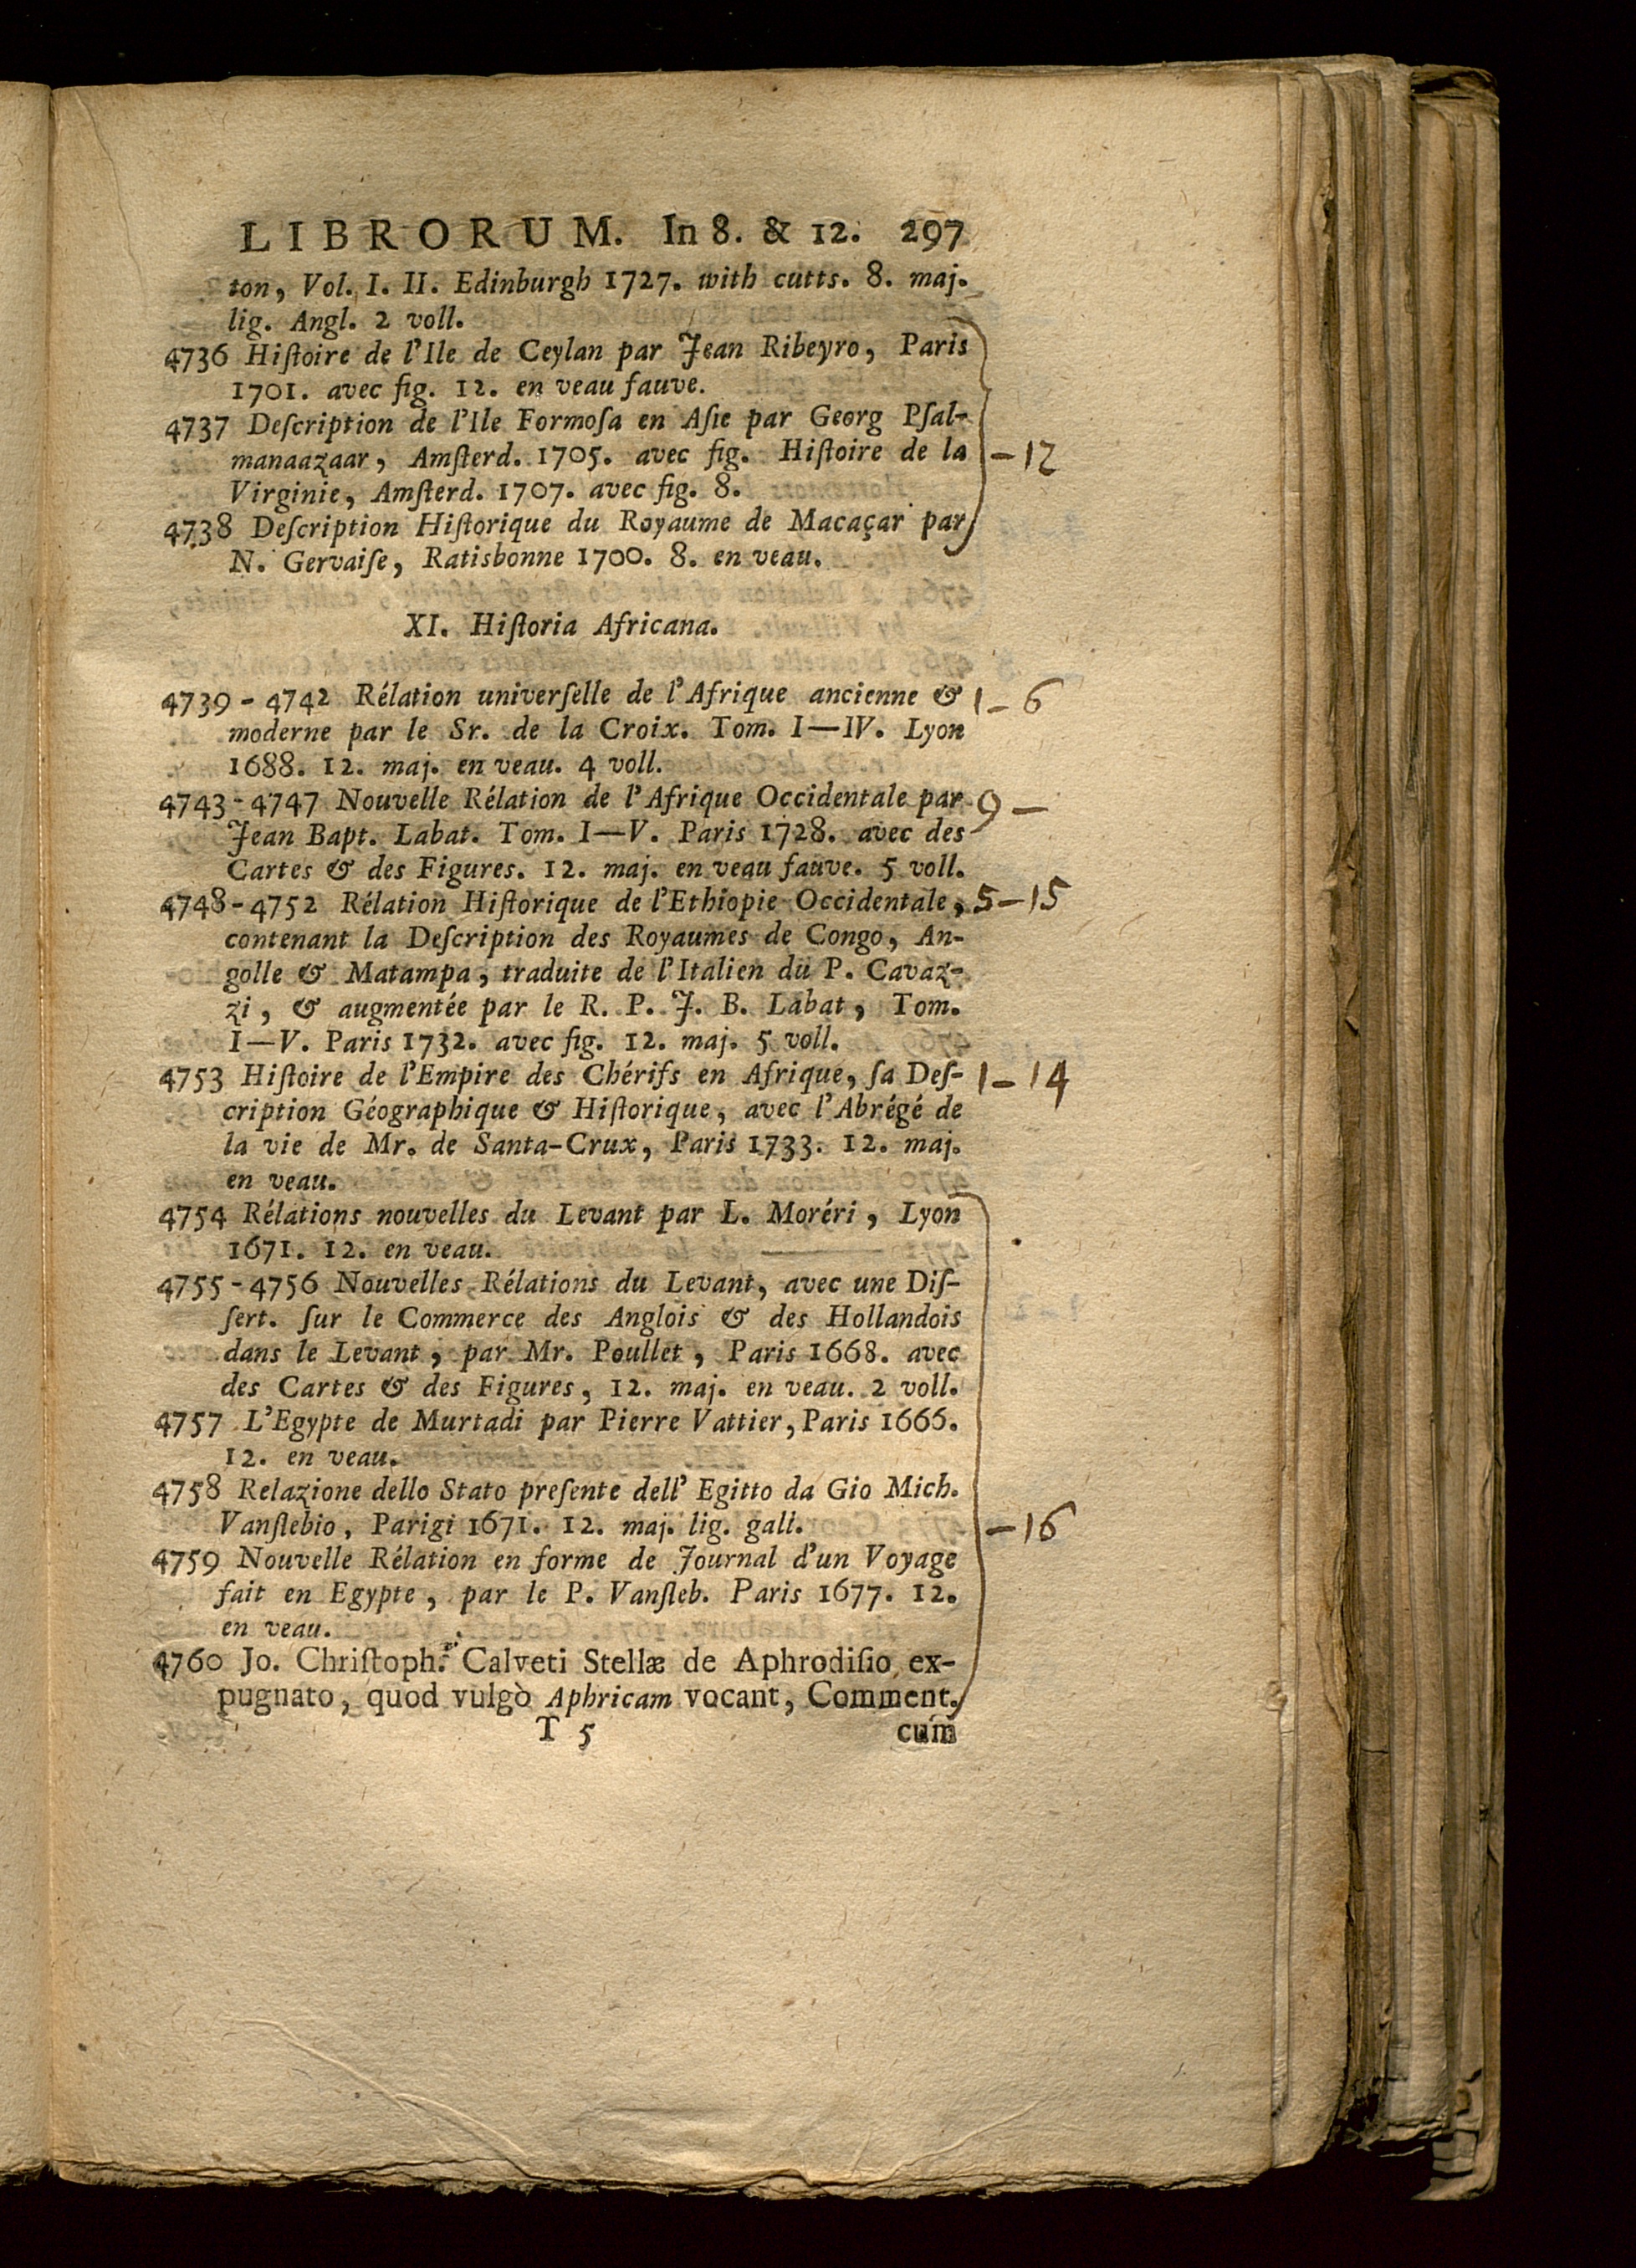 LIBRORUM. In 8. & 12. 297
ton, Vol. I. II. Edinburgh 1727. with cutts. 8. maj.
lig. Angl. 2 voll.
4736 Hiſtoire de l'Ile de Ceylan par Jean Ribeyro, Paris
1701. avec fig. 12. en veau fauve.
4737 Deſcription de l'Ile Formoſa en Aſie par Georg Pſal-
manaazaar, Amſterd. 1705. avec fig. Hiſtoire de la -12
Virginie, Amſterd. 1707. avec fig. 8.
4738 Deſcription Hiſtorique du Royaume de Macaçar par
N. Gervaiſe, Ratisbonne 1700. 8. en veau.
XI. Hiſtoria Africana.
4739-4742 Rélation univerſelle de l'Afrique ancienne & 1-6
moderne par le Sr. de la Croix. Tom. I—IV. Lyon
1688. 12. maj. en veau. 4 voll.
4743-4747 Nouvelle Rélation de l'Afrique Occidentale par 9-
Jean Bapt. Labat. Tom. I—V. Paris 1728. avec des
Cartes & des Figures. 12. maj. en veau fauve. 5 voll.
4748-4752 Rélation Hiſtorique de l'Ethiopie Occidentale, 5-15
contenant la Deſcription des Royaumes de Congo, An-
golle & Matampa, traduite de l'Italien du P. Cavaz-
zi, & augmentée par le R. P. J. B. Labat, Tom.
I—V. Paris 1732. avec fig. 12. maj. 5 voll.
4753 Hiſtoire de l'Empire des Chérifs en Afrique, ſa Deſ- 1-14
cription Géographique & Hiſtorique, avec l'Abrégé de
la vie de Mr. de Santa-Crux, Paris 1733. 12. maj.
en veau.
4754 Rélations nouvelles du Levant par L. Moréri, Lyon
1671. 12. en veau.
4755-4756 Nouvelles Rélations du Levant, avec une Diſ-
ſert. ſur le Commerce des Anglois & des Hollandois
dans le Levant, par Mr. Poullet, Paris 1668. avec
des Cartes & des Figures, 12. maj. en veau. 2 voll.
4757 L'Egypte de Murtadi par Pierre Vattier, Paris 1666.
12. en veau.
4758 Relazione dello Stato preſente dell' Egitto da Gio Mich.
Vanſlebio, Parigi 1671. 12. maj. lig. gall. -16
4759 Nouvelle Rélation en forme de Journal d'un Voyage
fait en Egypte, par le P. Vanſleb. Paris 1677. 12.
en veau.
4760 Jo. Chriſtoph. Calveti Stellæ de Aphrodiſio ex-
pugnato, quod vulgò Aphricam vocant, Comment.
T 5 cum